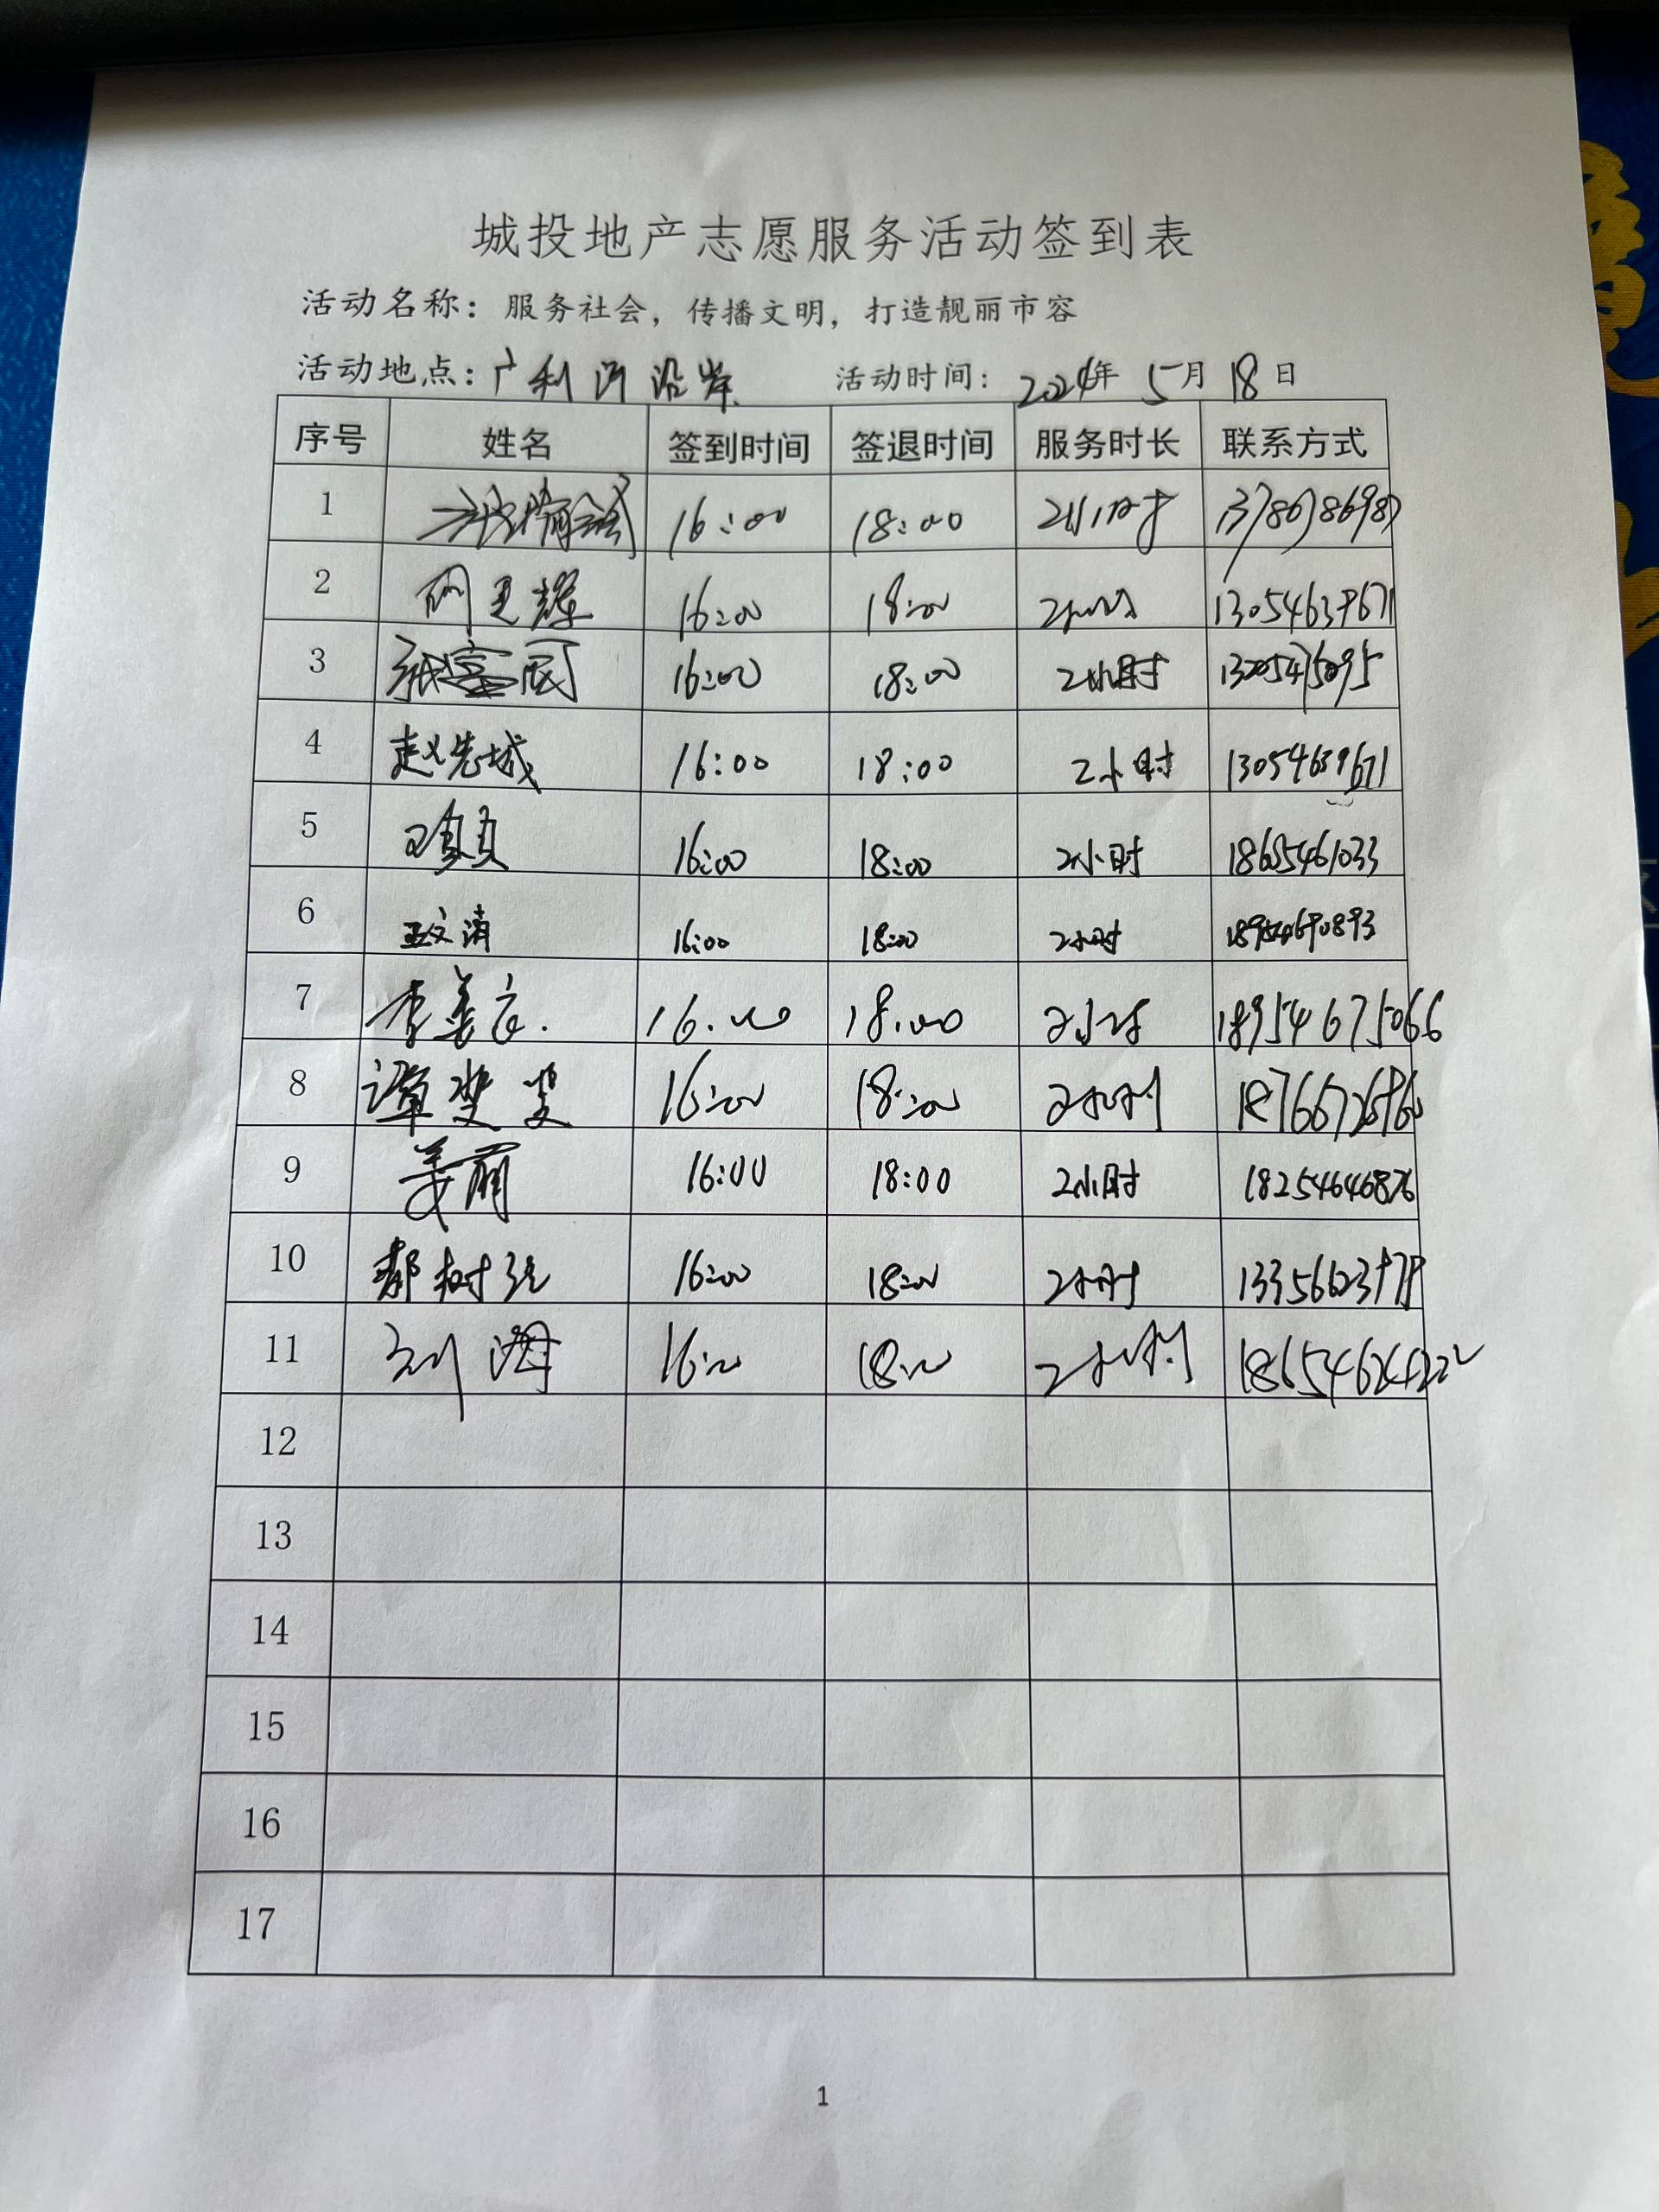 城投地产志愿服务活动签到表
活动名称：服务社会，传播文明，打造靓丽市容
活动地点：广利河沿岸 活动时间：2024年 5月 18日
序号 姓名 签到时间 签退时间 服务时长 联系方式
1 16:00 18:00 2小时
2 16:00 18:00 2小时 13054639671
3 16:00 18:00 2小时
4 赵先城 16:00 18:00 2小时 13054639671
5 16:00 18:00 2小时
6 王文涛 16:00 18:00 2小时
7 李美 16:00 18:00 2小时 18954675066
8 谭斐斐 16:00 18:00 2小时
9 姜丽 16:00 18:00 2小时 18254646876
10 16:00 18:00 2小时
11 刘海 16:00 18:00 2小时
12
13
14
15
16
17
1